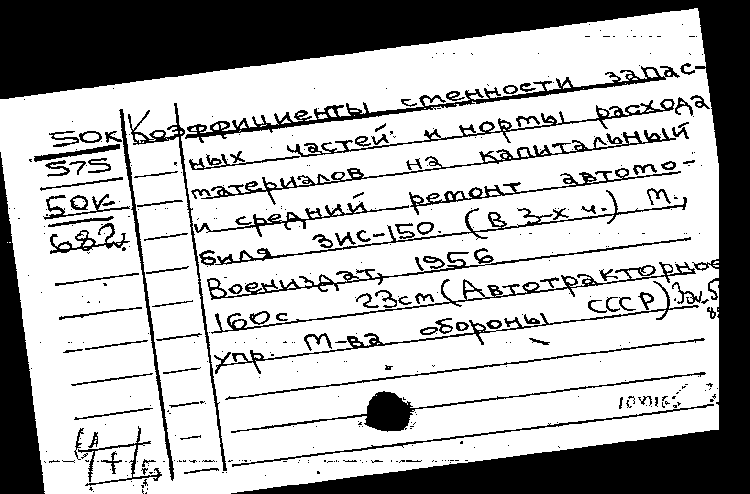 50к Коэффициенты сменности запас-
575 ных частей и нормы расхода
50к материалов на капитальный
682 и средний ремонт автомо-
биля ЗИС-150. (В 3-х ч.) М.,
Воениздат, 1956
160с. 23см (Автотракторное
упр. М-ва обороны СССР) Зак.